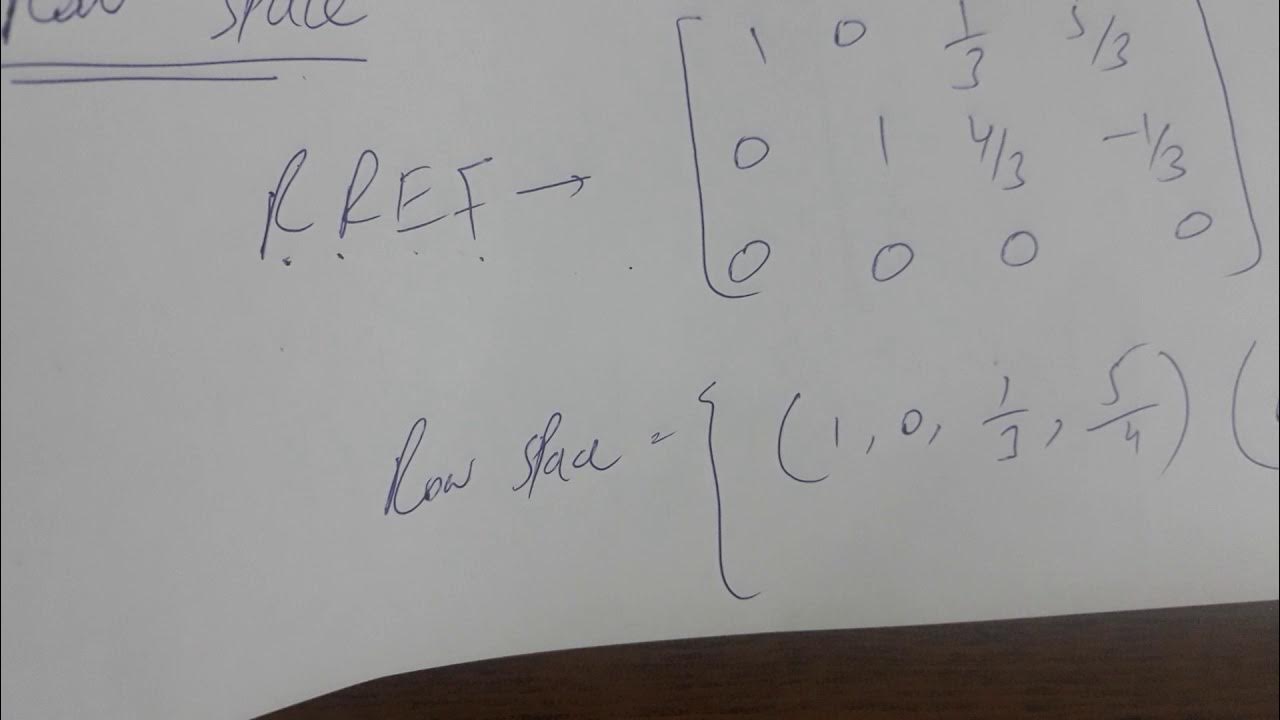 Row space
1 0 1/3 5/3
RREF → 0 1 4/3 -1/3
0 0 0 0
Row space = { (1, 0, 1/3, 5/4) (